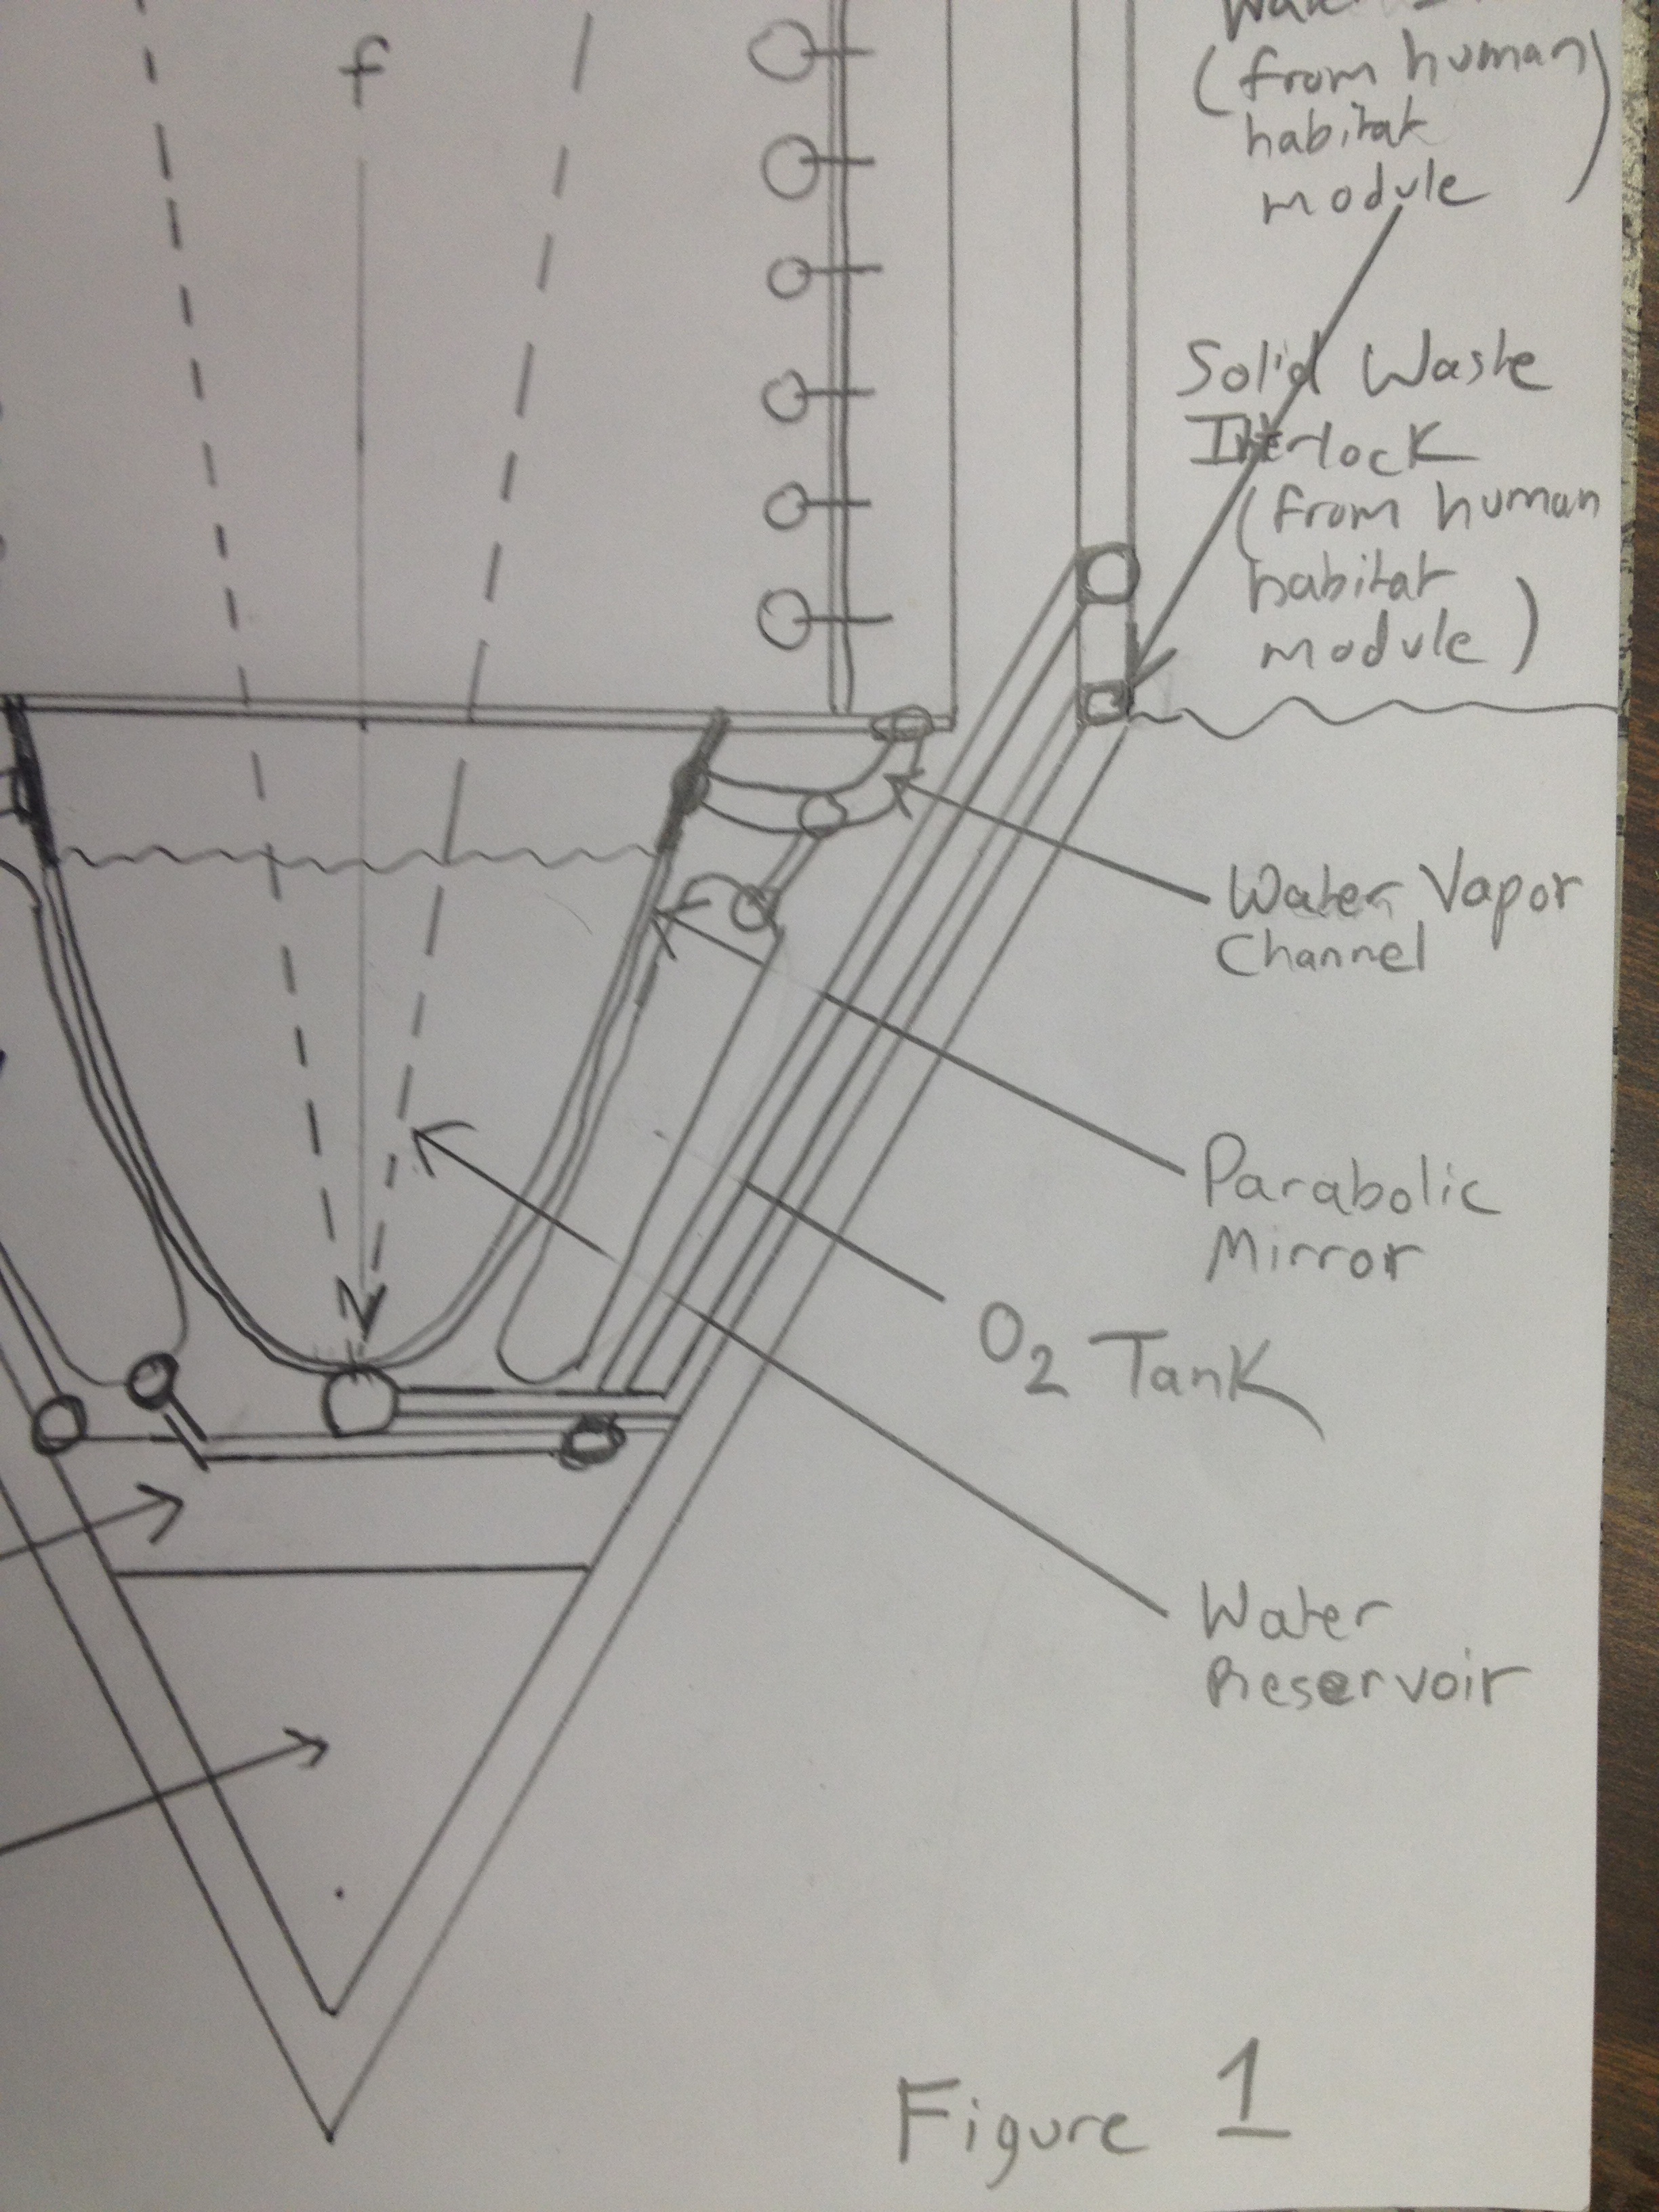 f
(from human)
habitat
module
Solid Waste
Interlock
(from human
habitat
module)
Water Vapor
Channel
Parabolic
Mirror
O2 Tank
Water
Reservoir
Figure 1